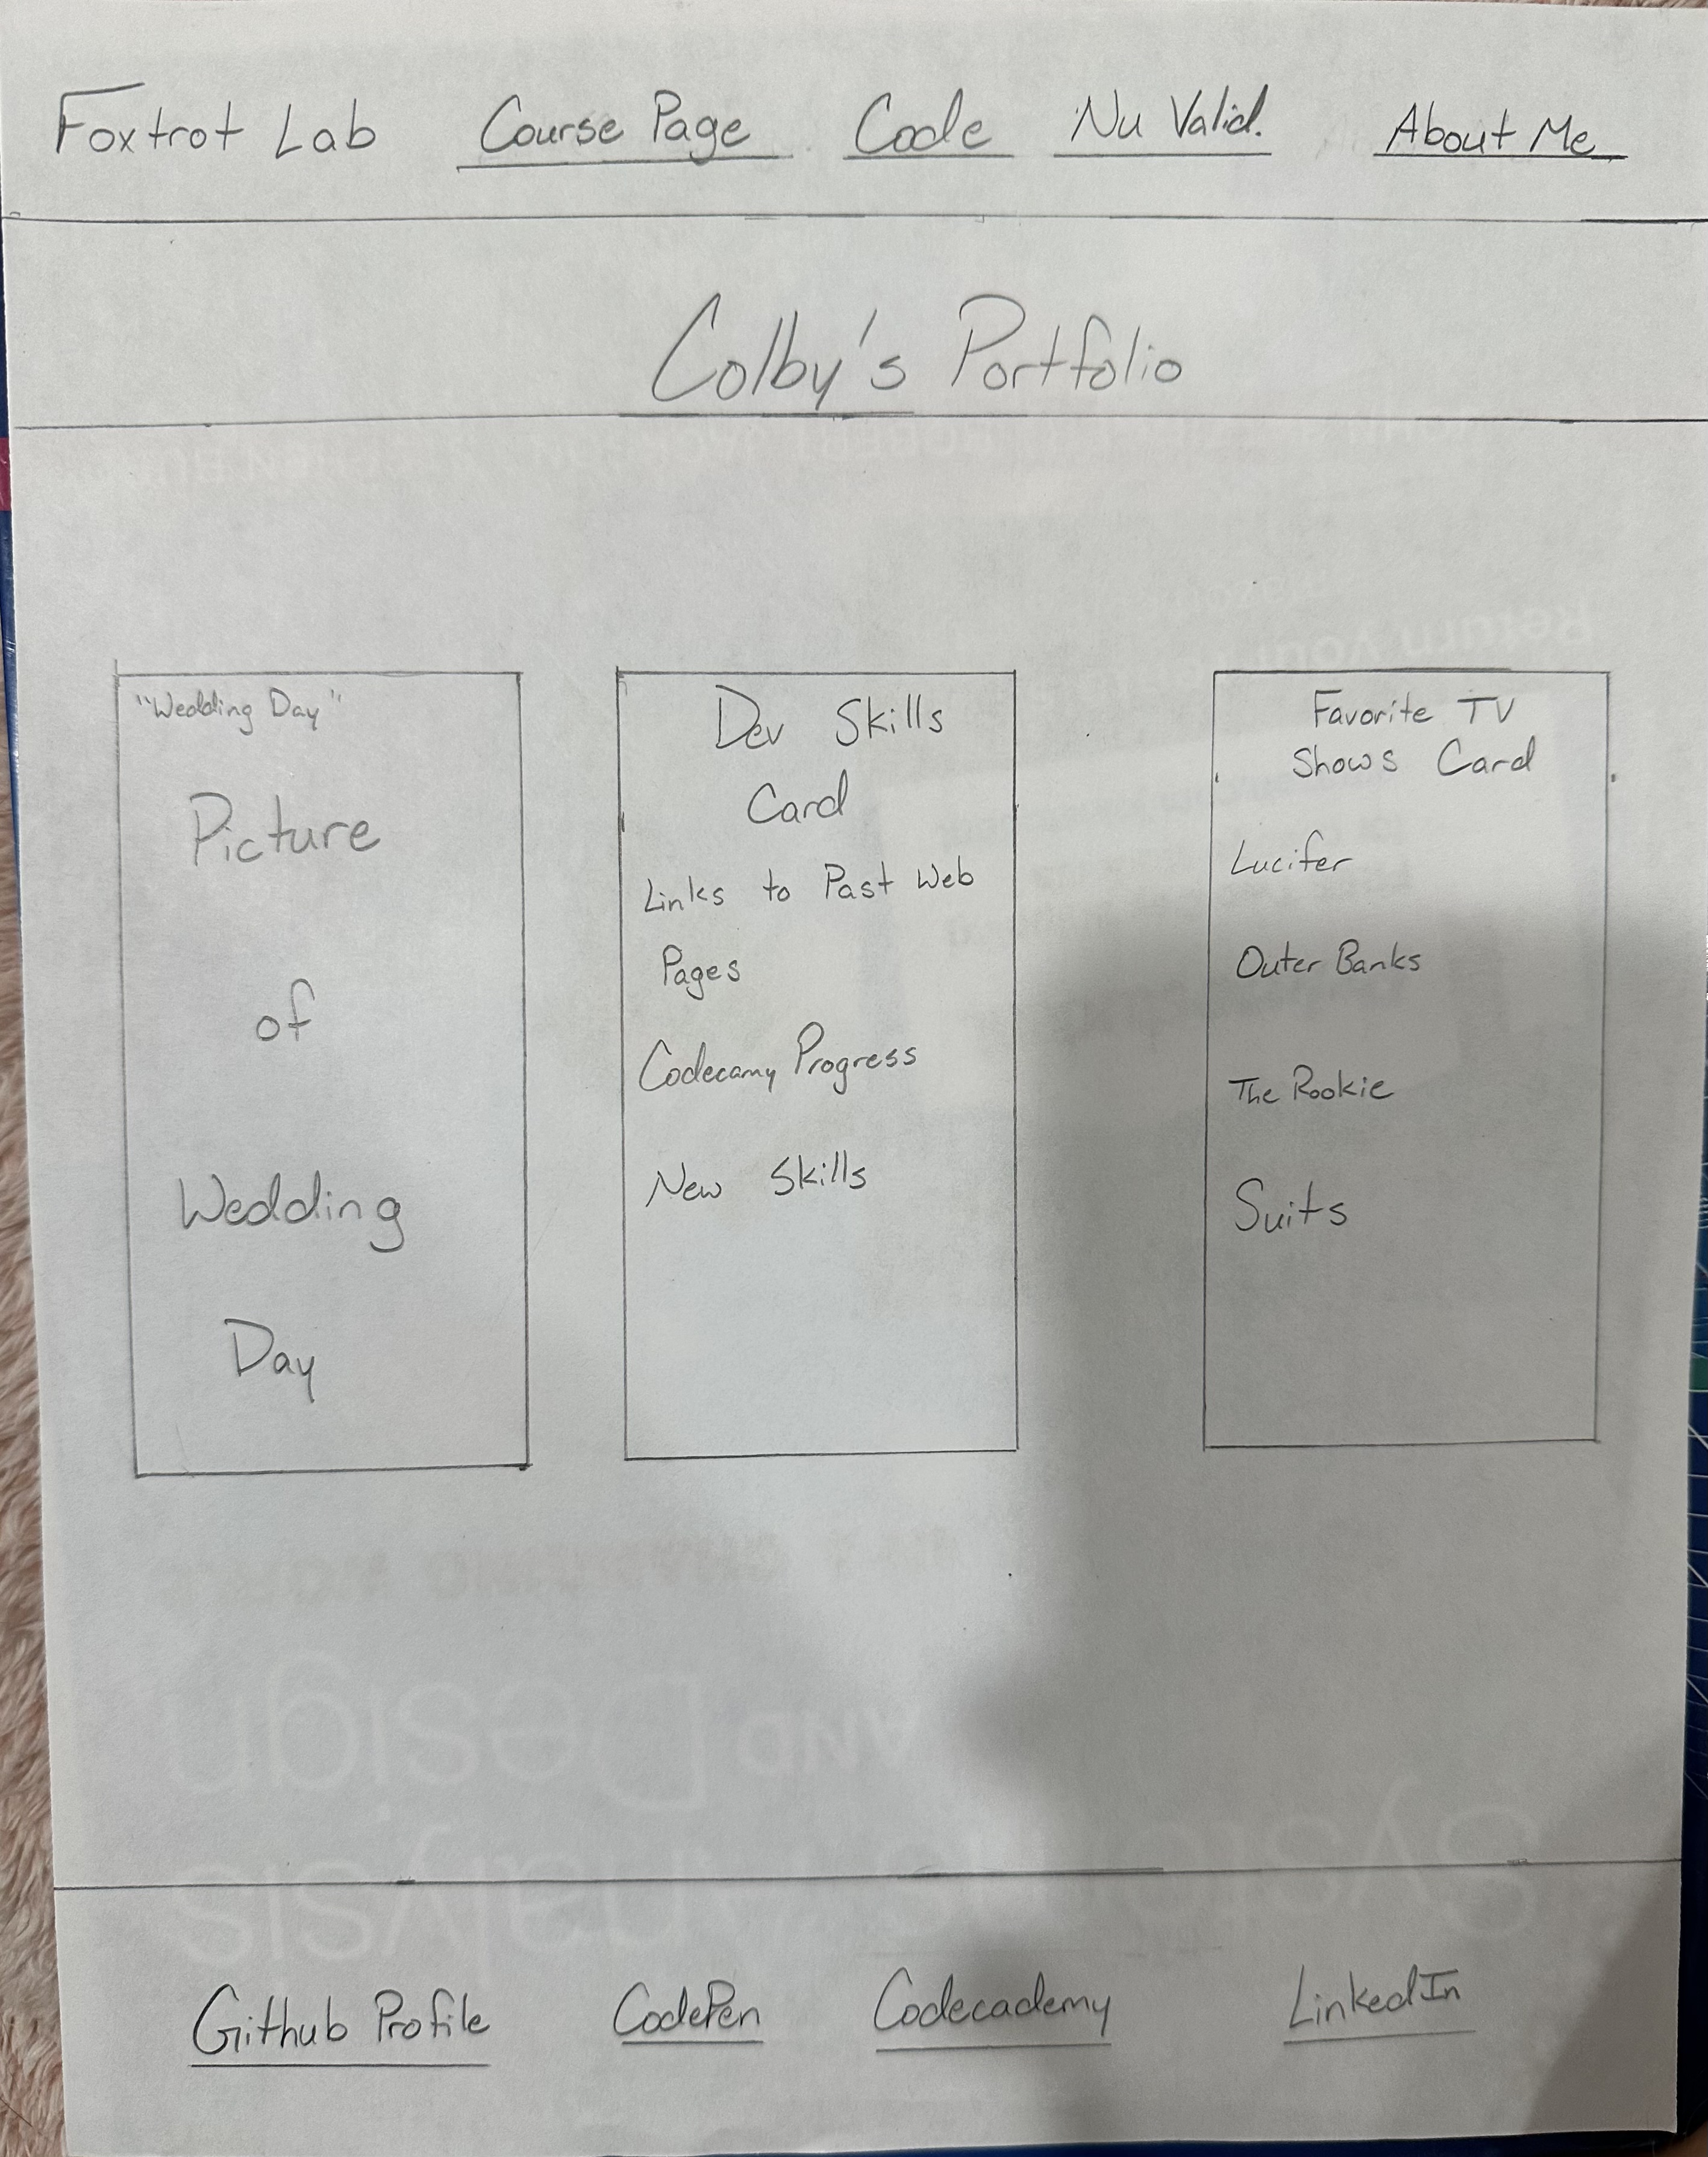 Foxtrot Lab Course Page Code Nu Valid. About Me
Colby's Portfolio
"Wedding Day"
Picture
of
Wedding
Day
Dev Skills
Card
Links to Past Web
Pages
Codecamy Progress
New Skills
Favorite TV
Shows Card
Lucifer
Outer Banks
The Rookie
Suits
Github Profile CodePen Codecademy LinkedIn